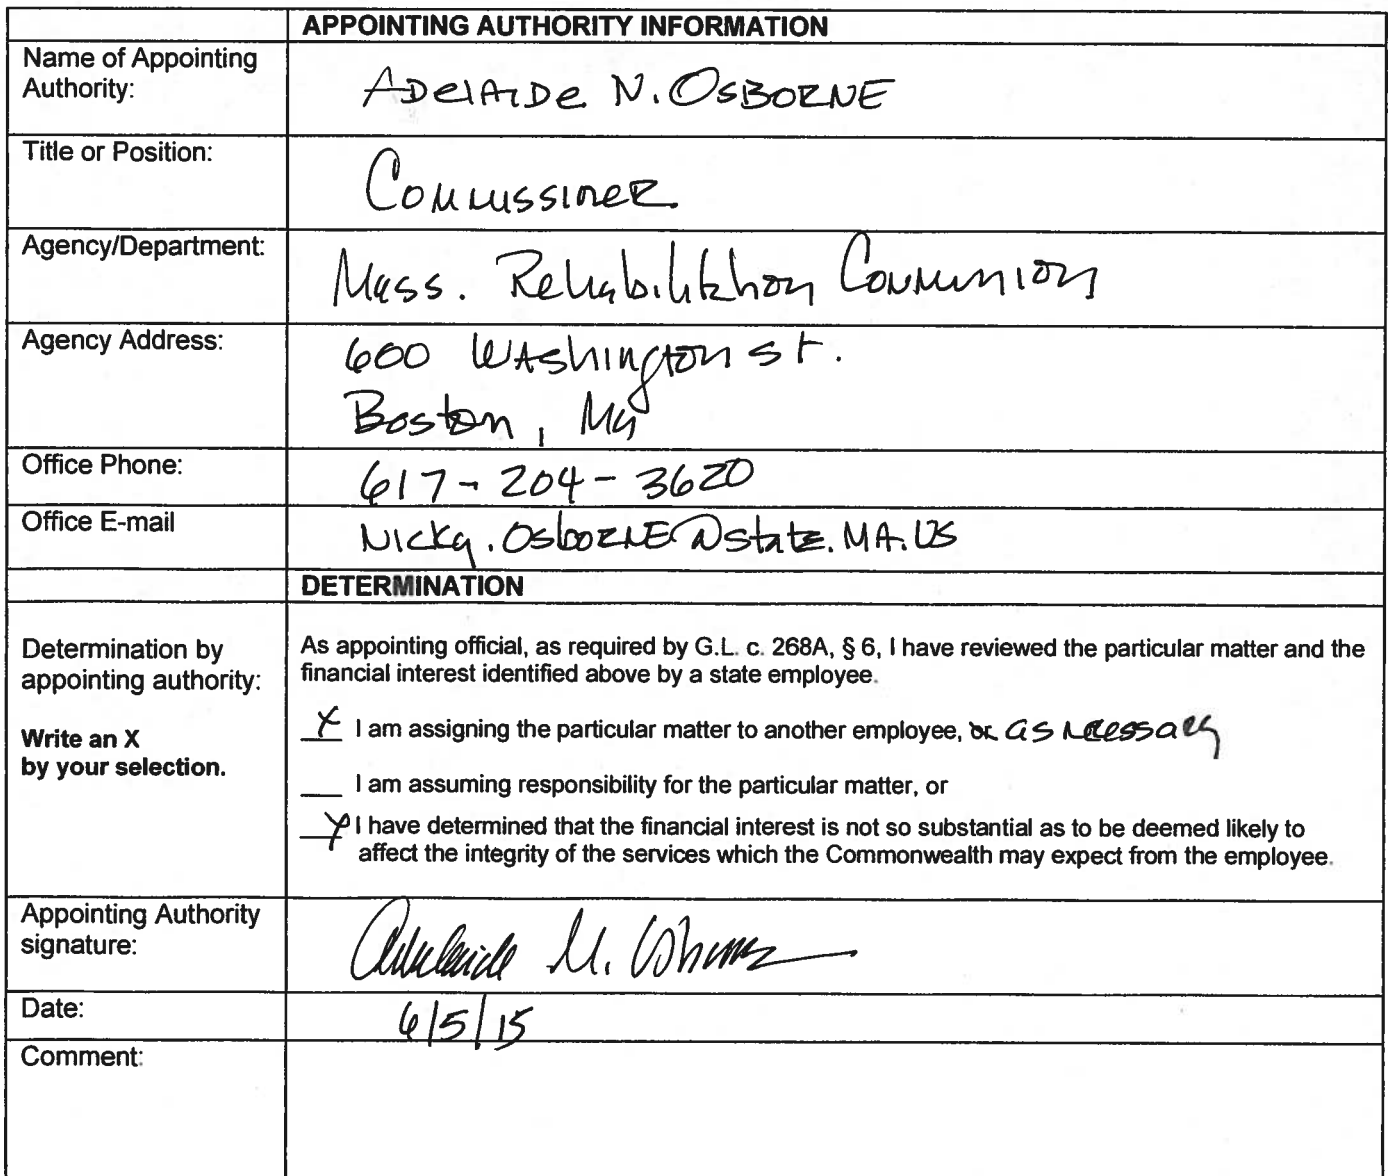 APPOINTING AUTHORITY INFORMATION
Name of Appointing
Authority:
ADelAIDe N. OSBORNE
Title or Position:
Commissioner
Agency/Department:
Mass. Rehabilitation Commission
Agency Address:
600 Washington St.
Boston, Ma
Office Phone:
617-204-3620
Office E-mail
Nicky.OsborNE@state.MA.US
DETERMINATION
Determination by
appointing authority:
Write an X
by your selection.
As appointing official, as required by G.L. c. 268A, § 6, I have reviewed the particular matter and the
financial interest identified above by a state employee.
X I am assigning the particular matter to another employee, or as necessary
___ I am assuming responsibility for the particular matter, or
X I have determined that the financial interest is not so substantial as to be deemed likely to
affect the integrity of the services which the Commonwealth may expect from the employee.
Appointing Authority
signature:
Adelaide N. Osborne
Date:
6/5/15
Comment: